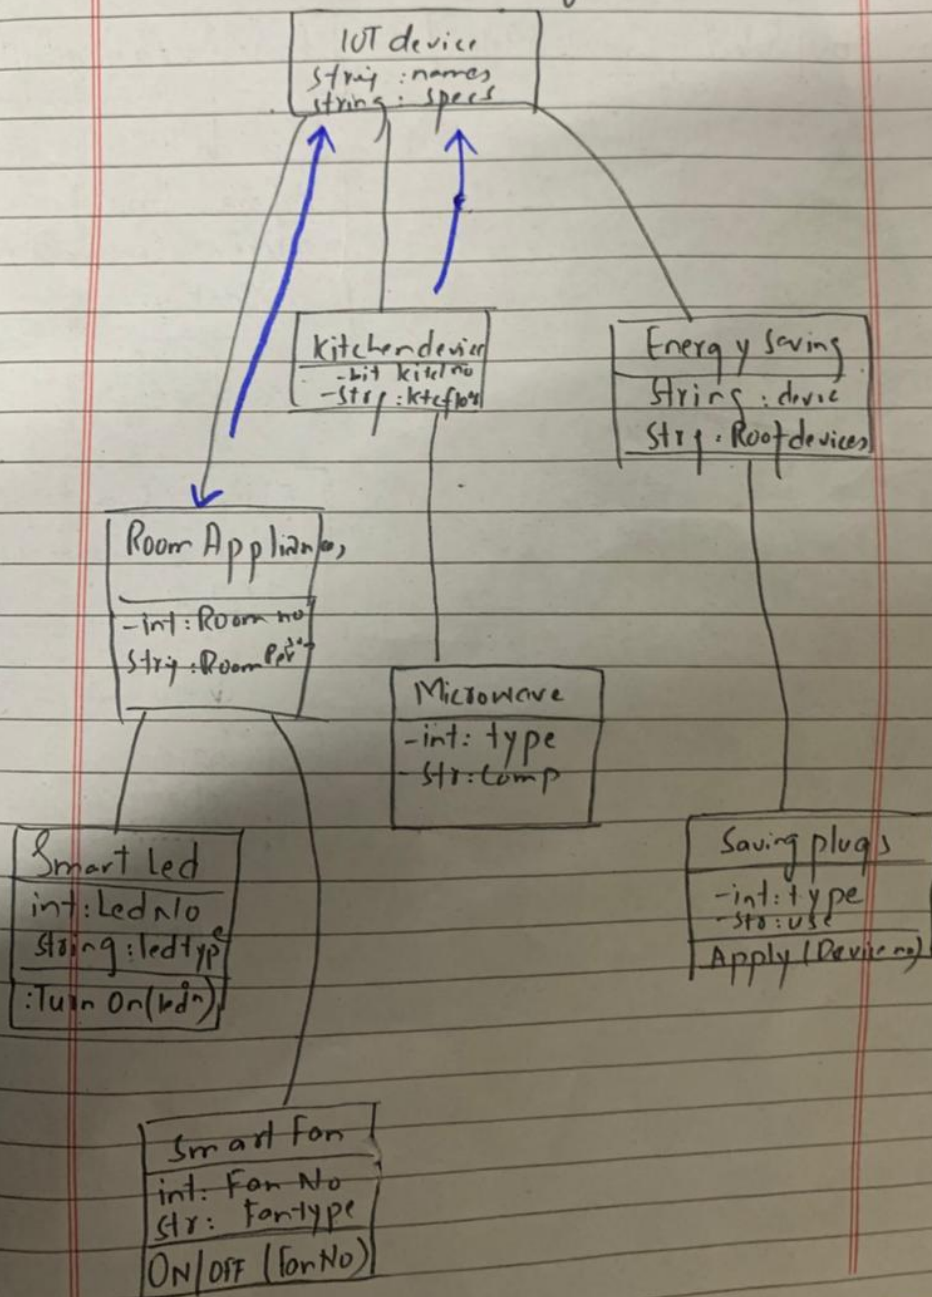 IOT device
string : names
string : specs
Kitchen device
-int kitch no
-Str :
Energy Saving
String : device
Str : Roof devices
Room Appliances
-int : Room no
Strig : Room
Microwave
-int: type
-str: Comp
Smart Led
int: Led N/o
string : ledtype
: Turn On(
Saving plugs
-int: type
-str: use
Apply (Device no)
Smart Fan
int: Fan No
str: Fantype
ON/OFF (FanNo)